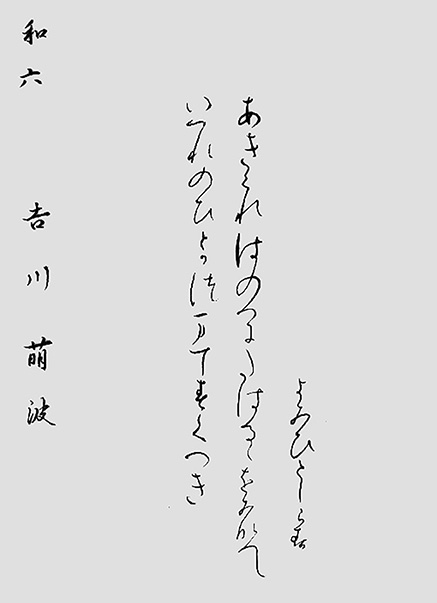 よみひとしらす
あきくれはのへにたはるゝをみなへし
いつれのひとかつまてすくへき
和六 吉川萌波